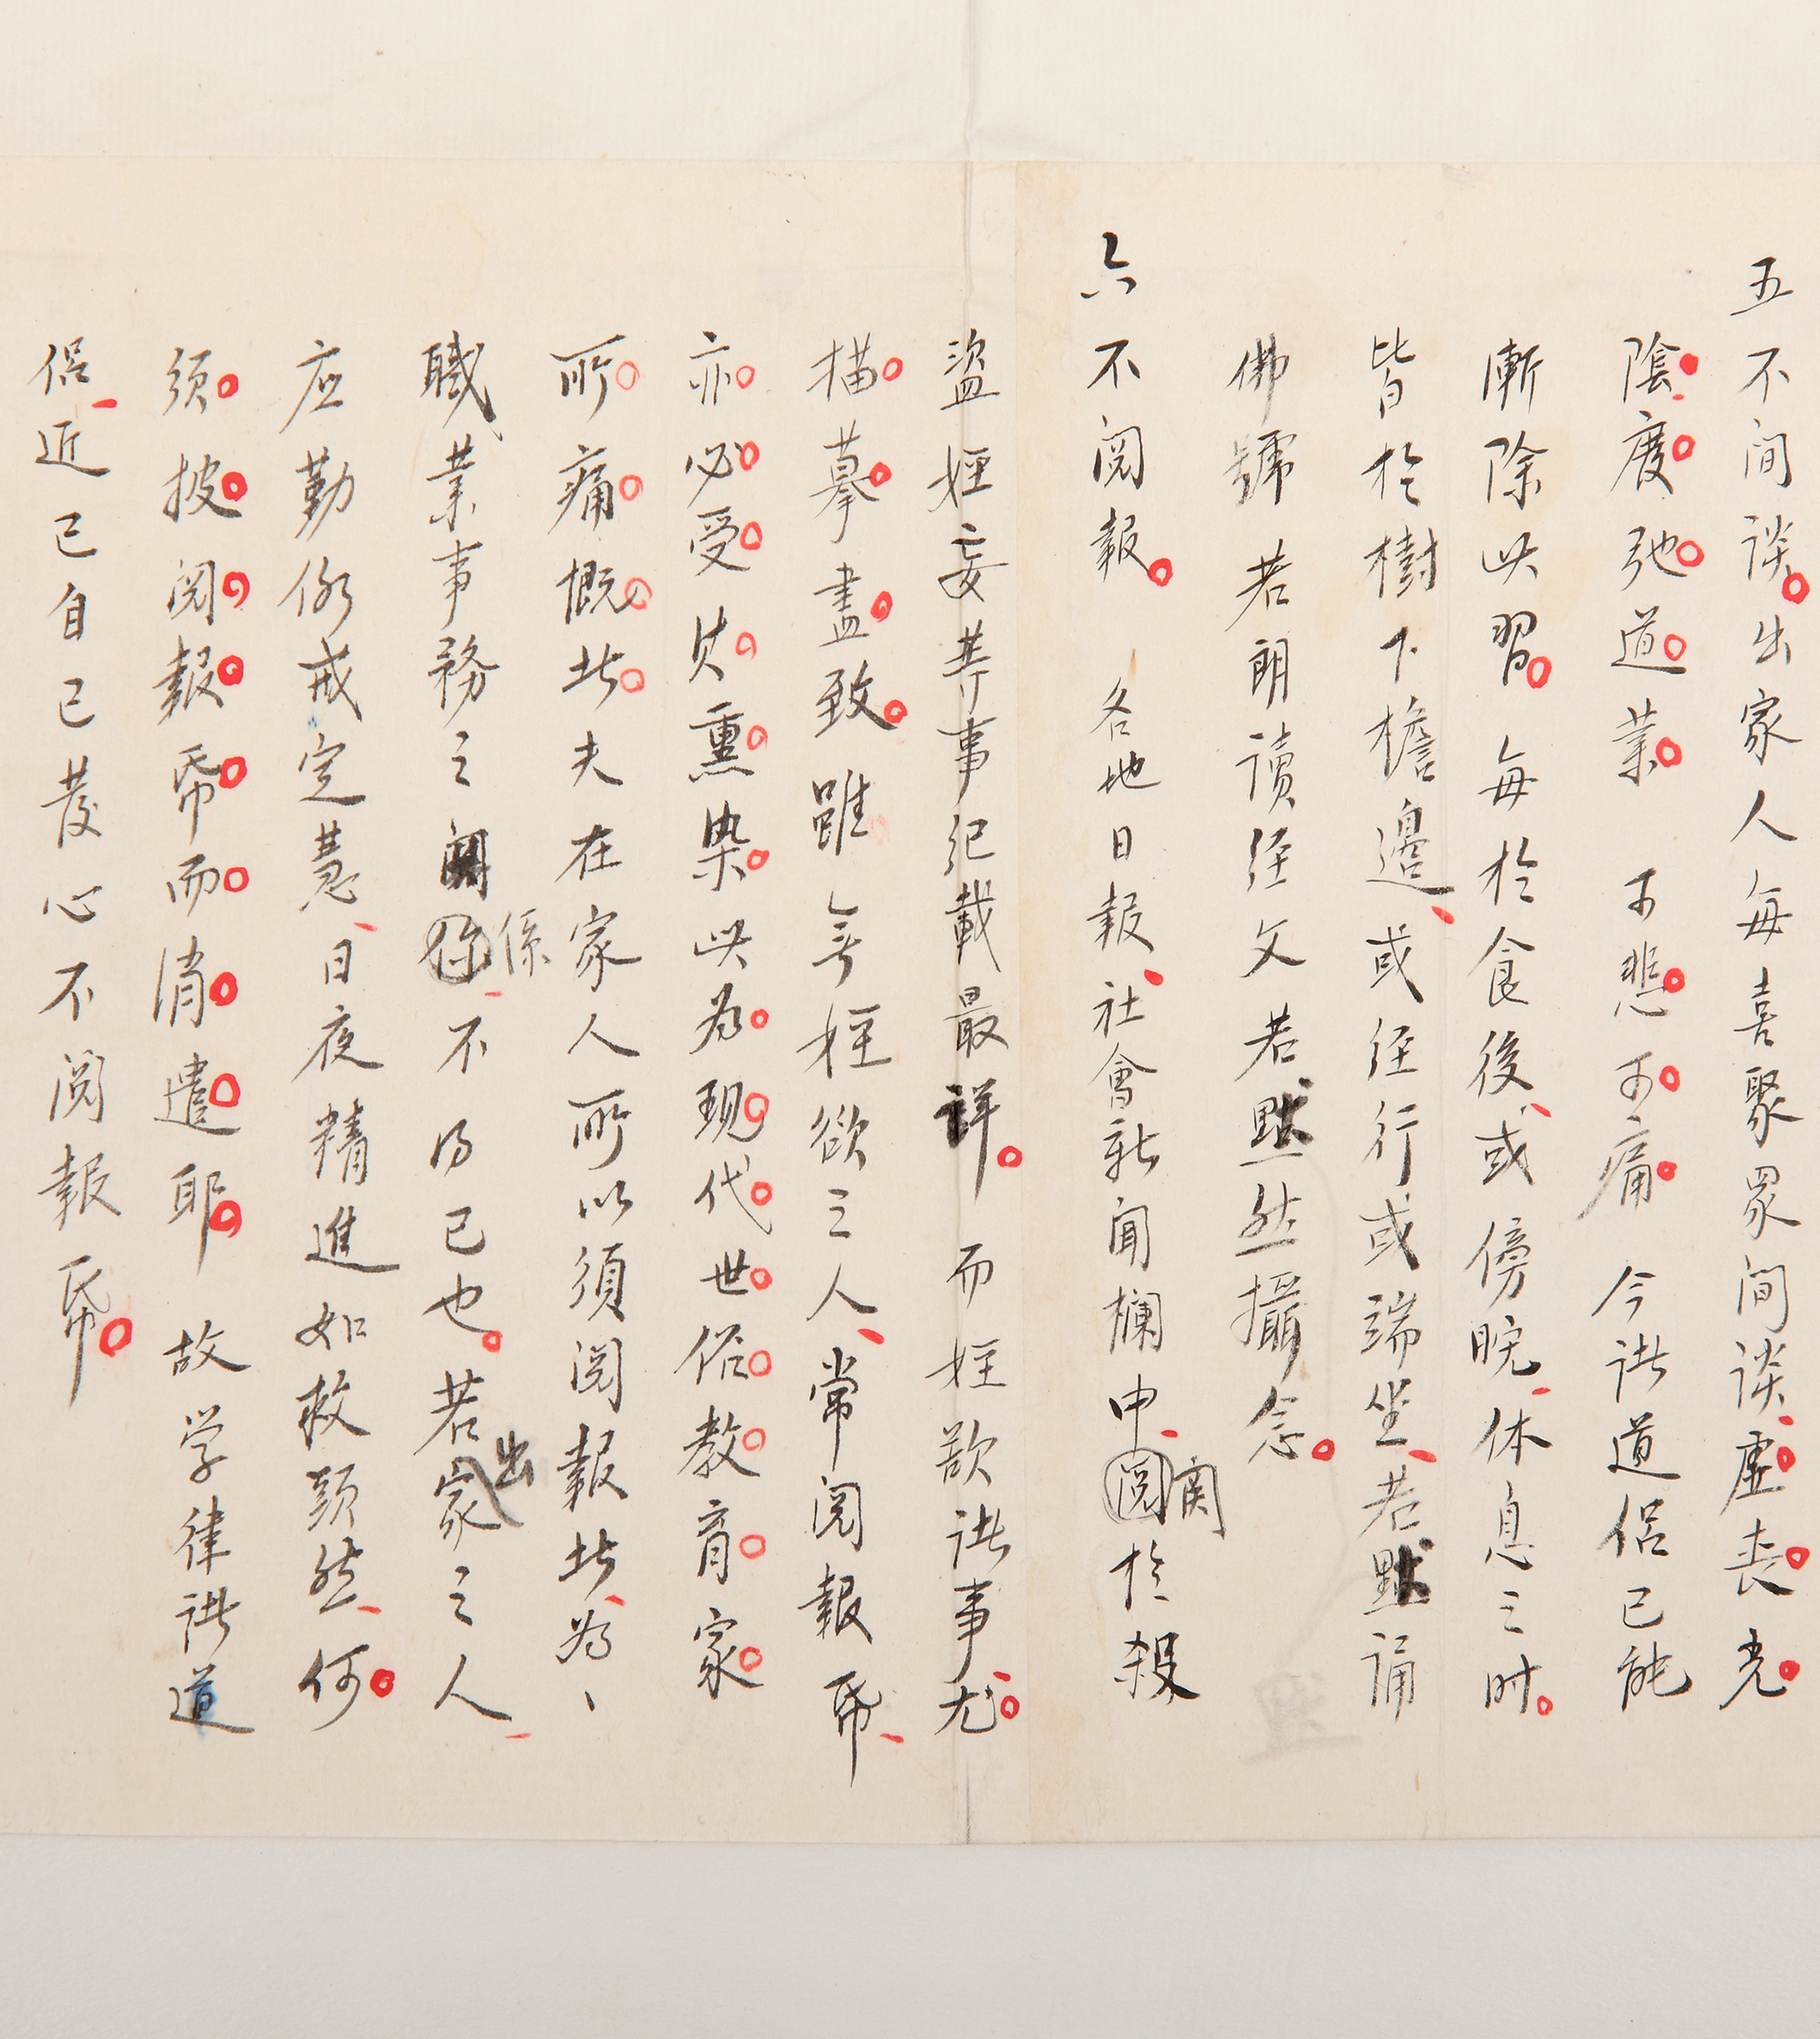 五不间谈出家人每喜聚眾间谈虛丧光
陰废弛道業 可悲可痛 今诸道侣已能
漸除此習 每於食後或傍晚休息之时
皆於樹下檐邊或经行或端坐若默诵
佛號 若朗讀经文若默然攝念
六不阅報 各地日報社會新闻欄中関於殺
盜婬妄等事纪載最详 而婬欲诸事尤
描摹盡致 雖無婬欲之人常阅報帋
亦必受其熏染此为現代世俗教育家
所痛慨者夫在家人所以須阅報者为
職業事務之関係不得已也若出家之人
应勤修戒定慧日夜精進如救頭然何
须披阅報帋而消遣耶 故学律诸道
侣近已自己发心不阅報帋